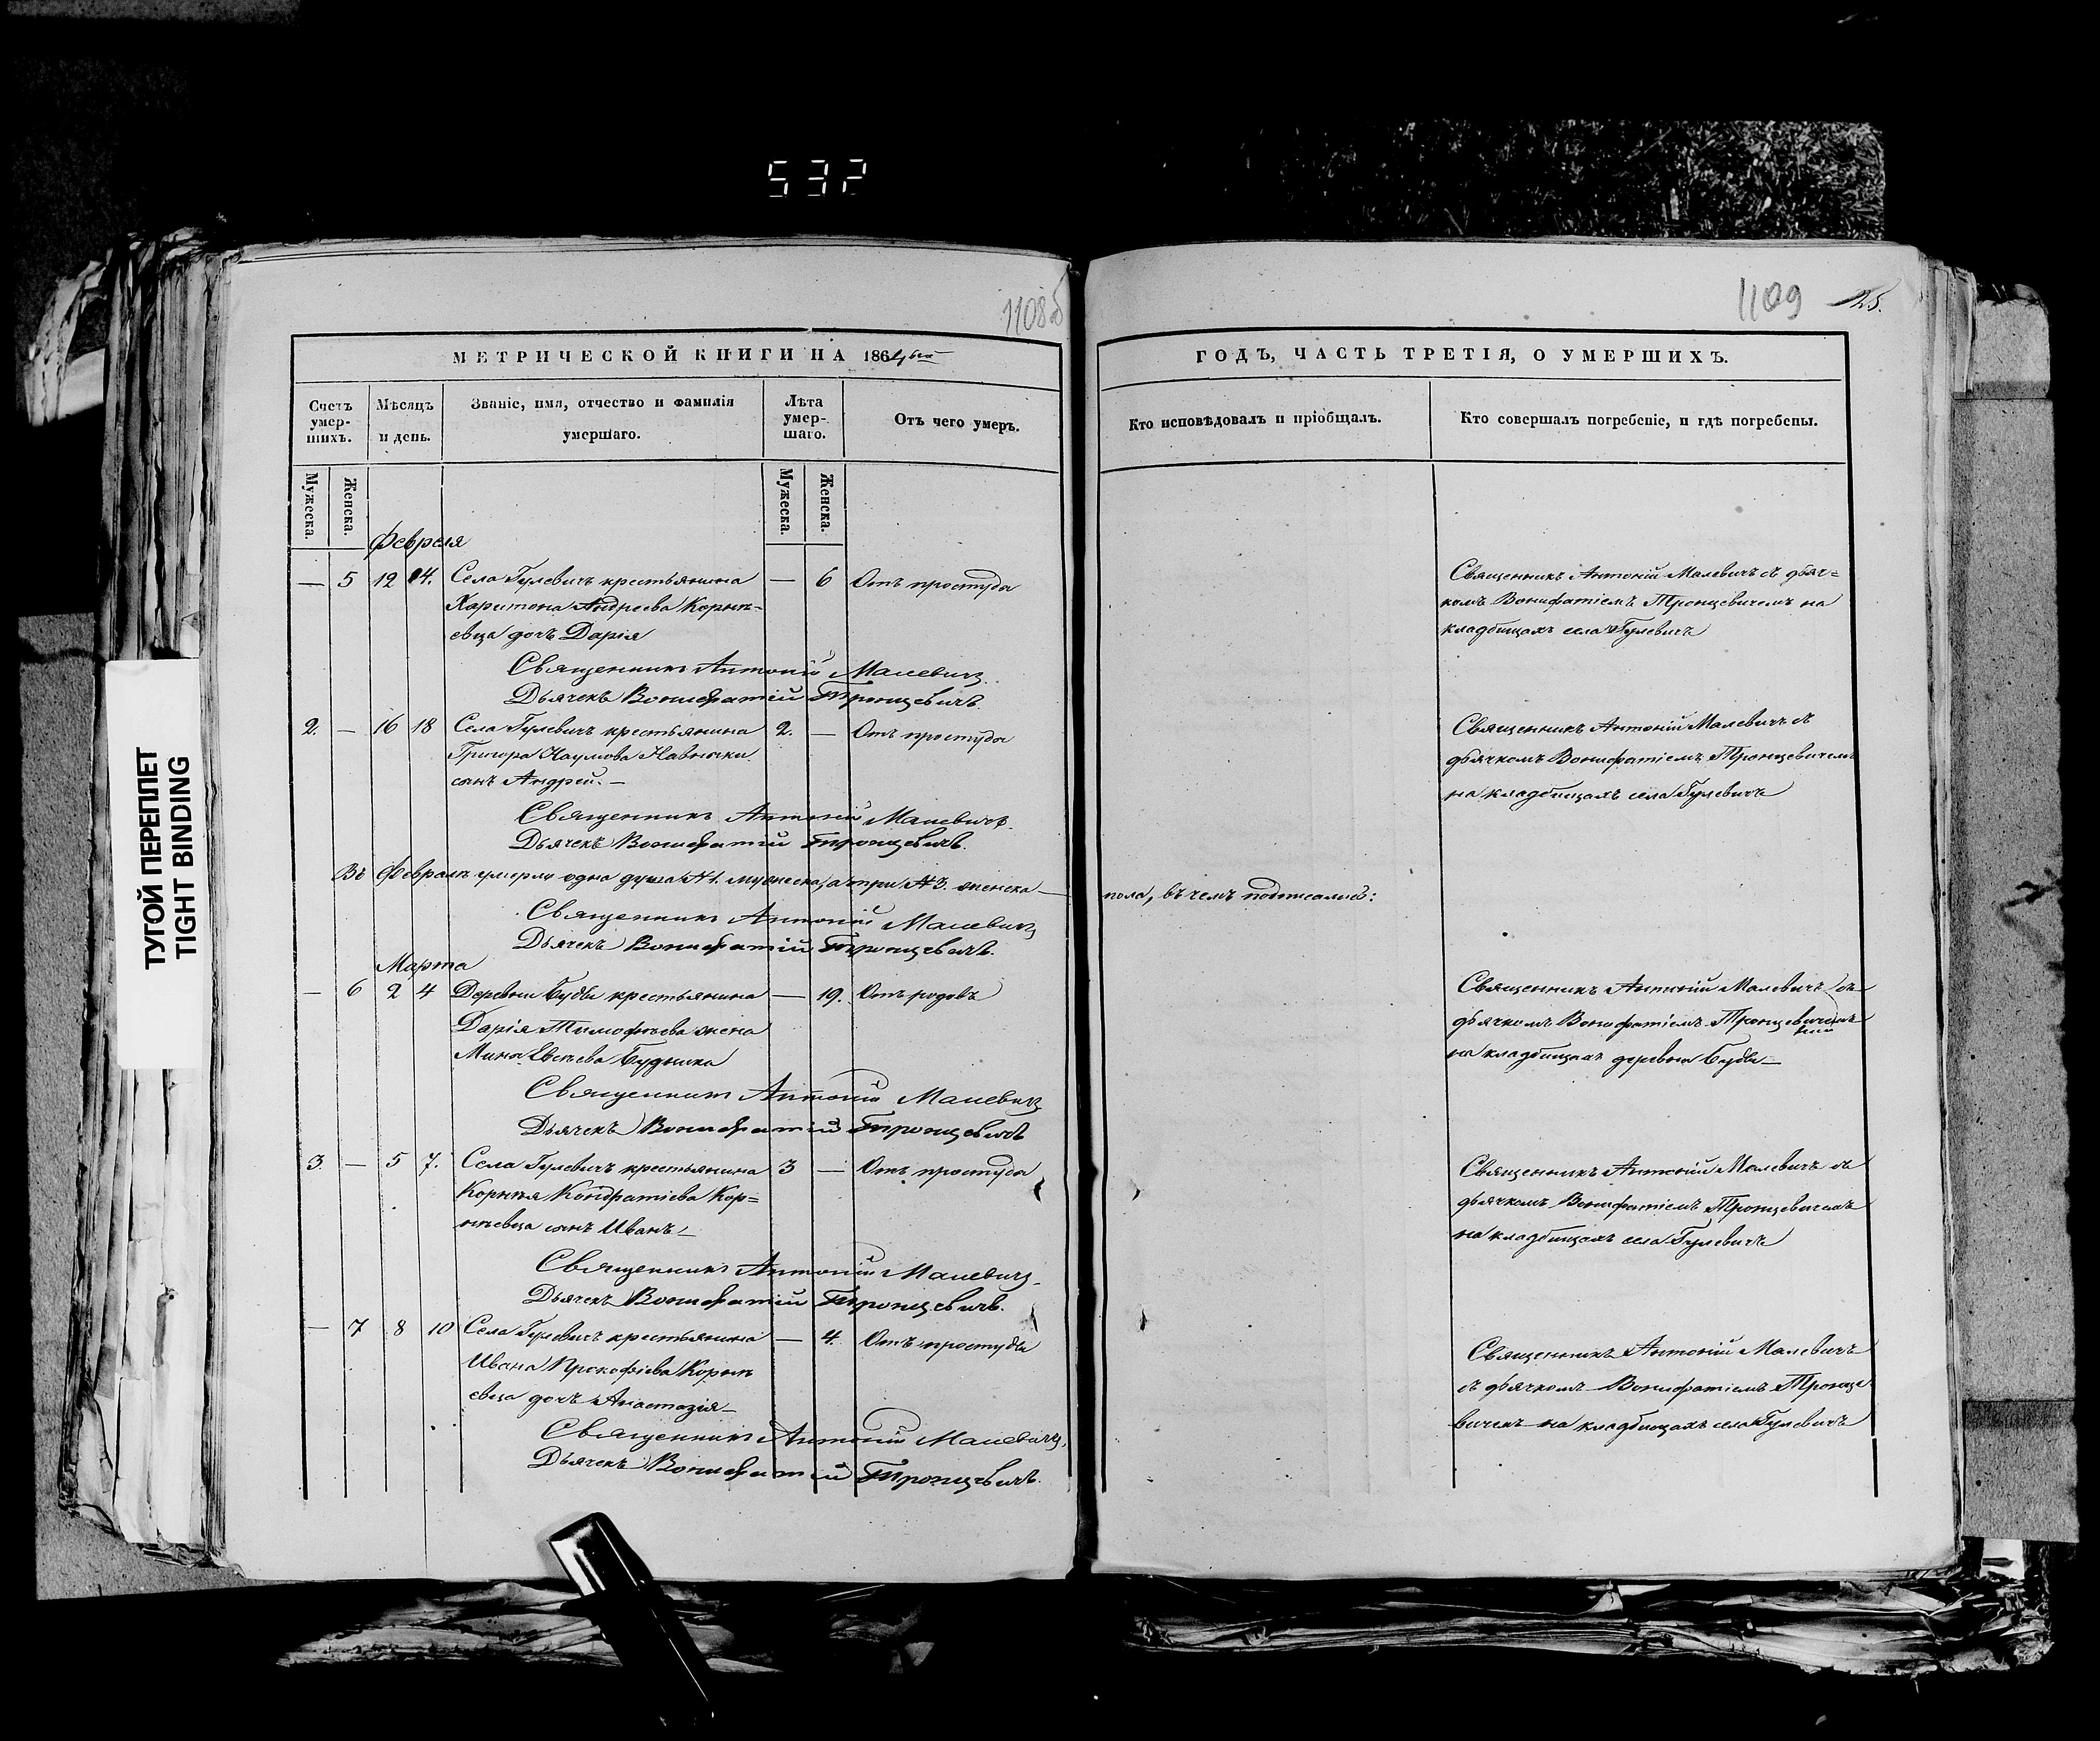 532
ТУГОЙ ПЕРЕПЛЕТ
TIGHT BINDING
1108об
МЕТРИЧЕСКОЙ КНИГИ НА 1864
Счетъ умер-шихъ.
Мѣсяцъ и день.
Званіе, имя, отчество и фамилія умершаго.
Лѣта умер-шаго.
Отъ чего умеръ.
Мужеска.
Женска.
Мужеска.
Женска.
Февраля
— 5 12 14. Села Гулевичъ крестьянина — 6 Отъ простуды
Харитона Андреева Корнѣ-
евца дочь Дарія
Священникъ Антоній Малевичъ
Дьячекъ Вонифатій Тронцевичъ.
2. — 16 18 Села Гулевичъ крестьянина 2. — Отъ простуды
Григора Наумова
сынъ Андрей. —
Священникъ Антоній Малевичъ.
Дьячекъ Вонифатій Тронцевичъ.
Въ Февралѣ умерли одна душа № 1. мужеска, а три № 3. женска —
Священникъ Антоній Малевичъ
Дьячекъ Вонифатій Тронцевичъ.
Марта
— 6 2 4 Деревни Буды крестьянина — 19. Отъ родовъ
Дарія Тимофѣева жена
Мины Будника
Священникъ Антоній Малевичъ
Дьячекъ Вонифатій Тронцевичъ
3. — 5 7. Села Гулевичъ крестьянина 3 — Отъ простуды
Корнѣя Кондратіева Кор=
нѣевца сынъ Иванъ —
Священникъ Антоній Малевичъ.
Дьячекъ Вонифатій Тронцевичъ.
— 7 8 10 Села Гулевичъ крестьянина — 4. Отъ простуды
Ивана Прокофіева Корнѣ
евца дочь Анастазія —
Священникъ Антоній Малевичъ,
Дьячекъ Вонифатій Тронцевичъ.
1109 25.
ГОДЪ, ЧАСТЬ ТРЕТІЯ, О УМЕРШИХЪ.
Кто исповѣдовалъ и пріобщалъ.
Кто совершалъ погребеніе, и гдѣ погребены.
Священникъ Антоній Малевичъ съ дьяч=
комъ Вонифатіемъ Тронцевичемъ на
кладбищахъ села Гулевичъ
Священникъ Антоній Малевичъ съ
дьячкомъ Вонифатіемъ Тронцевичемъ
на кладбищахъ села Гулевичъ
пола, въ чемъ подписались:
Священникъ Антоній Малевичъ съ
дьячкомъ Вонифатіемъ Тронцевичемъ
на кладбищахъ деревни Буды —
Священникъ Антоній Малевичъ съ
дьячкомъ Вонифатіемъ Тронцевичемъ
на кладбищахъ села Гулевичъ
Священникъ Антоній Малевичъ
съ дьячкомъ Вонифатіемъ Тронце
вичемъ на кладбищахъ села Гулевичъ